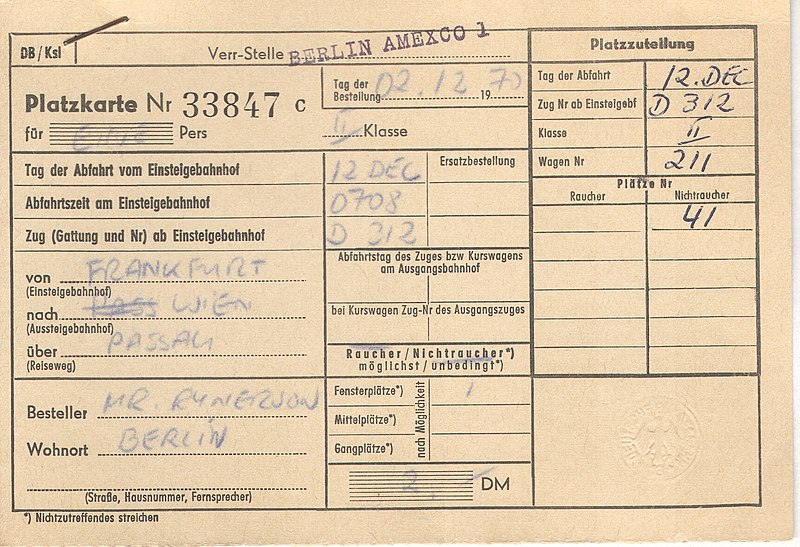 DB/Ksl
Verr-Stelle BERLIN AMEXCO 1
Platzkarte Nr 33847 c
für EINE Pers
Tag der Bestellung 02.12.70 19
II Klasse
Tag der Abfahrt vom Einsteigebahnhof 12 DEC
Ersatzbestellung
Abfahrtszeit am Einsteigebahnhof 0708
Zug (Gattung und Nr) ab Einsteigebahnhof D 312
von FRANKFURT
(Einsteigebahnhof)
nach WIEN
(Aussteigebahnhof)
über PASSAU
(Reiseweg)
Abfahrtstag des Zuges bzw Kurswagens
am Ausgangsbahnhof
bei Kurswagen Zug-Nr des Ausgangszuges
Raucher/Nichtraucher*)
möglichst/unbedingt*)
Besteller MR. RYNERSON
Wohnort BERLIN
(Straße, Hausnummer, Fernsprecher)
Fensterplätze*) 1
Mittelplätze*)
Gangplätze*)
nach Möglichkeit
2,- DM
*) Nichtzutreffendes streichen
Platzzuteilung
Tag der Abfahrt 12. DEC
Zug Nr ab Einsteigebf D 312
Klasse II
Wagen Nr 211
Plätze Nr
Raucher Nichtraucher
41